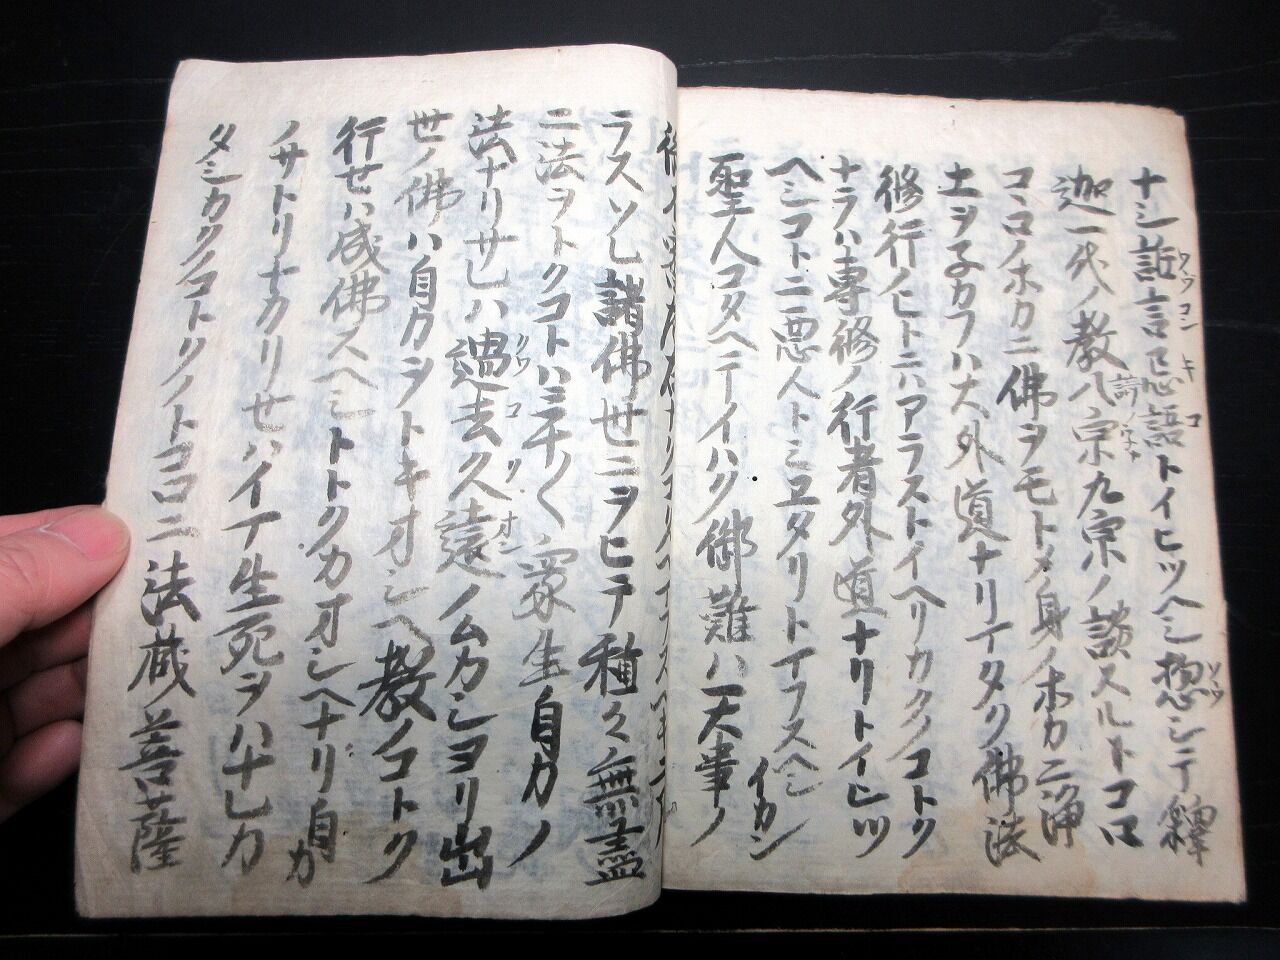 ナシ誑言忌語トイヒツヘシ惣シテ釋
迦一代ノ教八宗九宗ノ談スルトコロ
コヽロノホカニ佛ヲモトメ身ノホカニ浄
土ヲネカフハ大外道ナリイタク佛法
修行ノヒトニハアラストイヘリカクノコトク
ナラハ専修ノ行者外道ナリトイヒツ
ヘシコトニ悪人トミヱタリトイフスヘシイカン
聖人コタヘテイハク御難ハ一天事ノ
ラスソレ諸佛世ニヲヒテ種々無盡
ニ法ヲトクコトハミナ〳〵衆生自力ノ
法ナリサレハ過去久遠ノムカシヨリ出
世ノ佛ハ自力ヲトキオシヘ教ノコトク
行セハ成佛スヘシトトクカオシヘナリ自力
ノサトリナカリセハイテ生死ヲハナレカ
タシカクノコトクノトコロニ法蔵菩薩